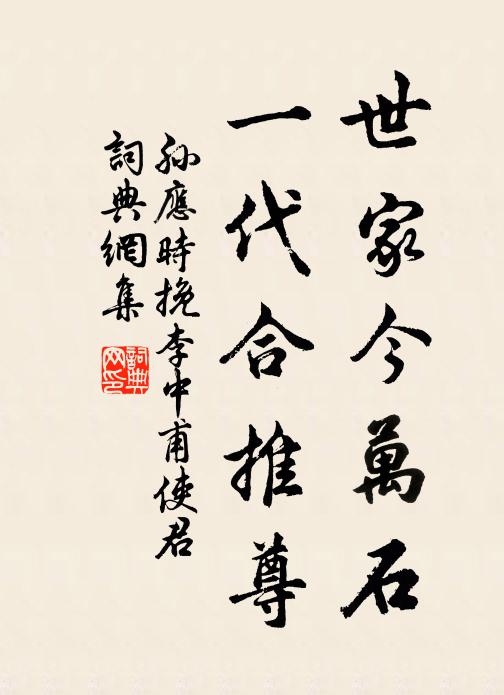 世家今萬石
一代合推尊
孫應時挽李中甫使君
詞典網集
詞典网印